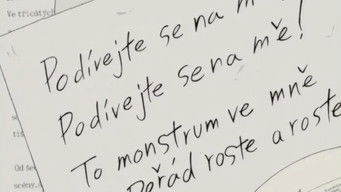 Ve třicátých
Podívejte se na m
Podívejte se na mě!
To monstrum ve mně
Pořád roste a roste
Od še
scény.